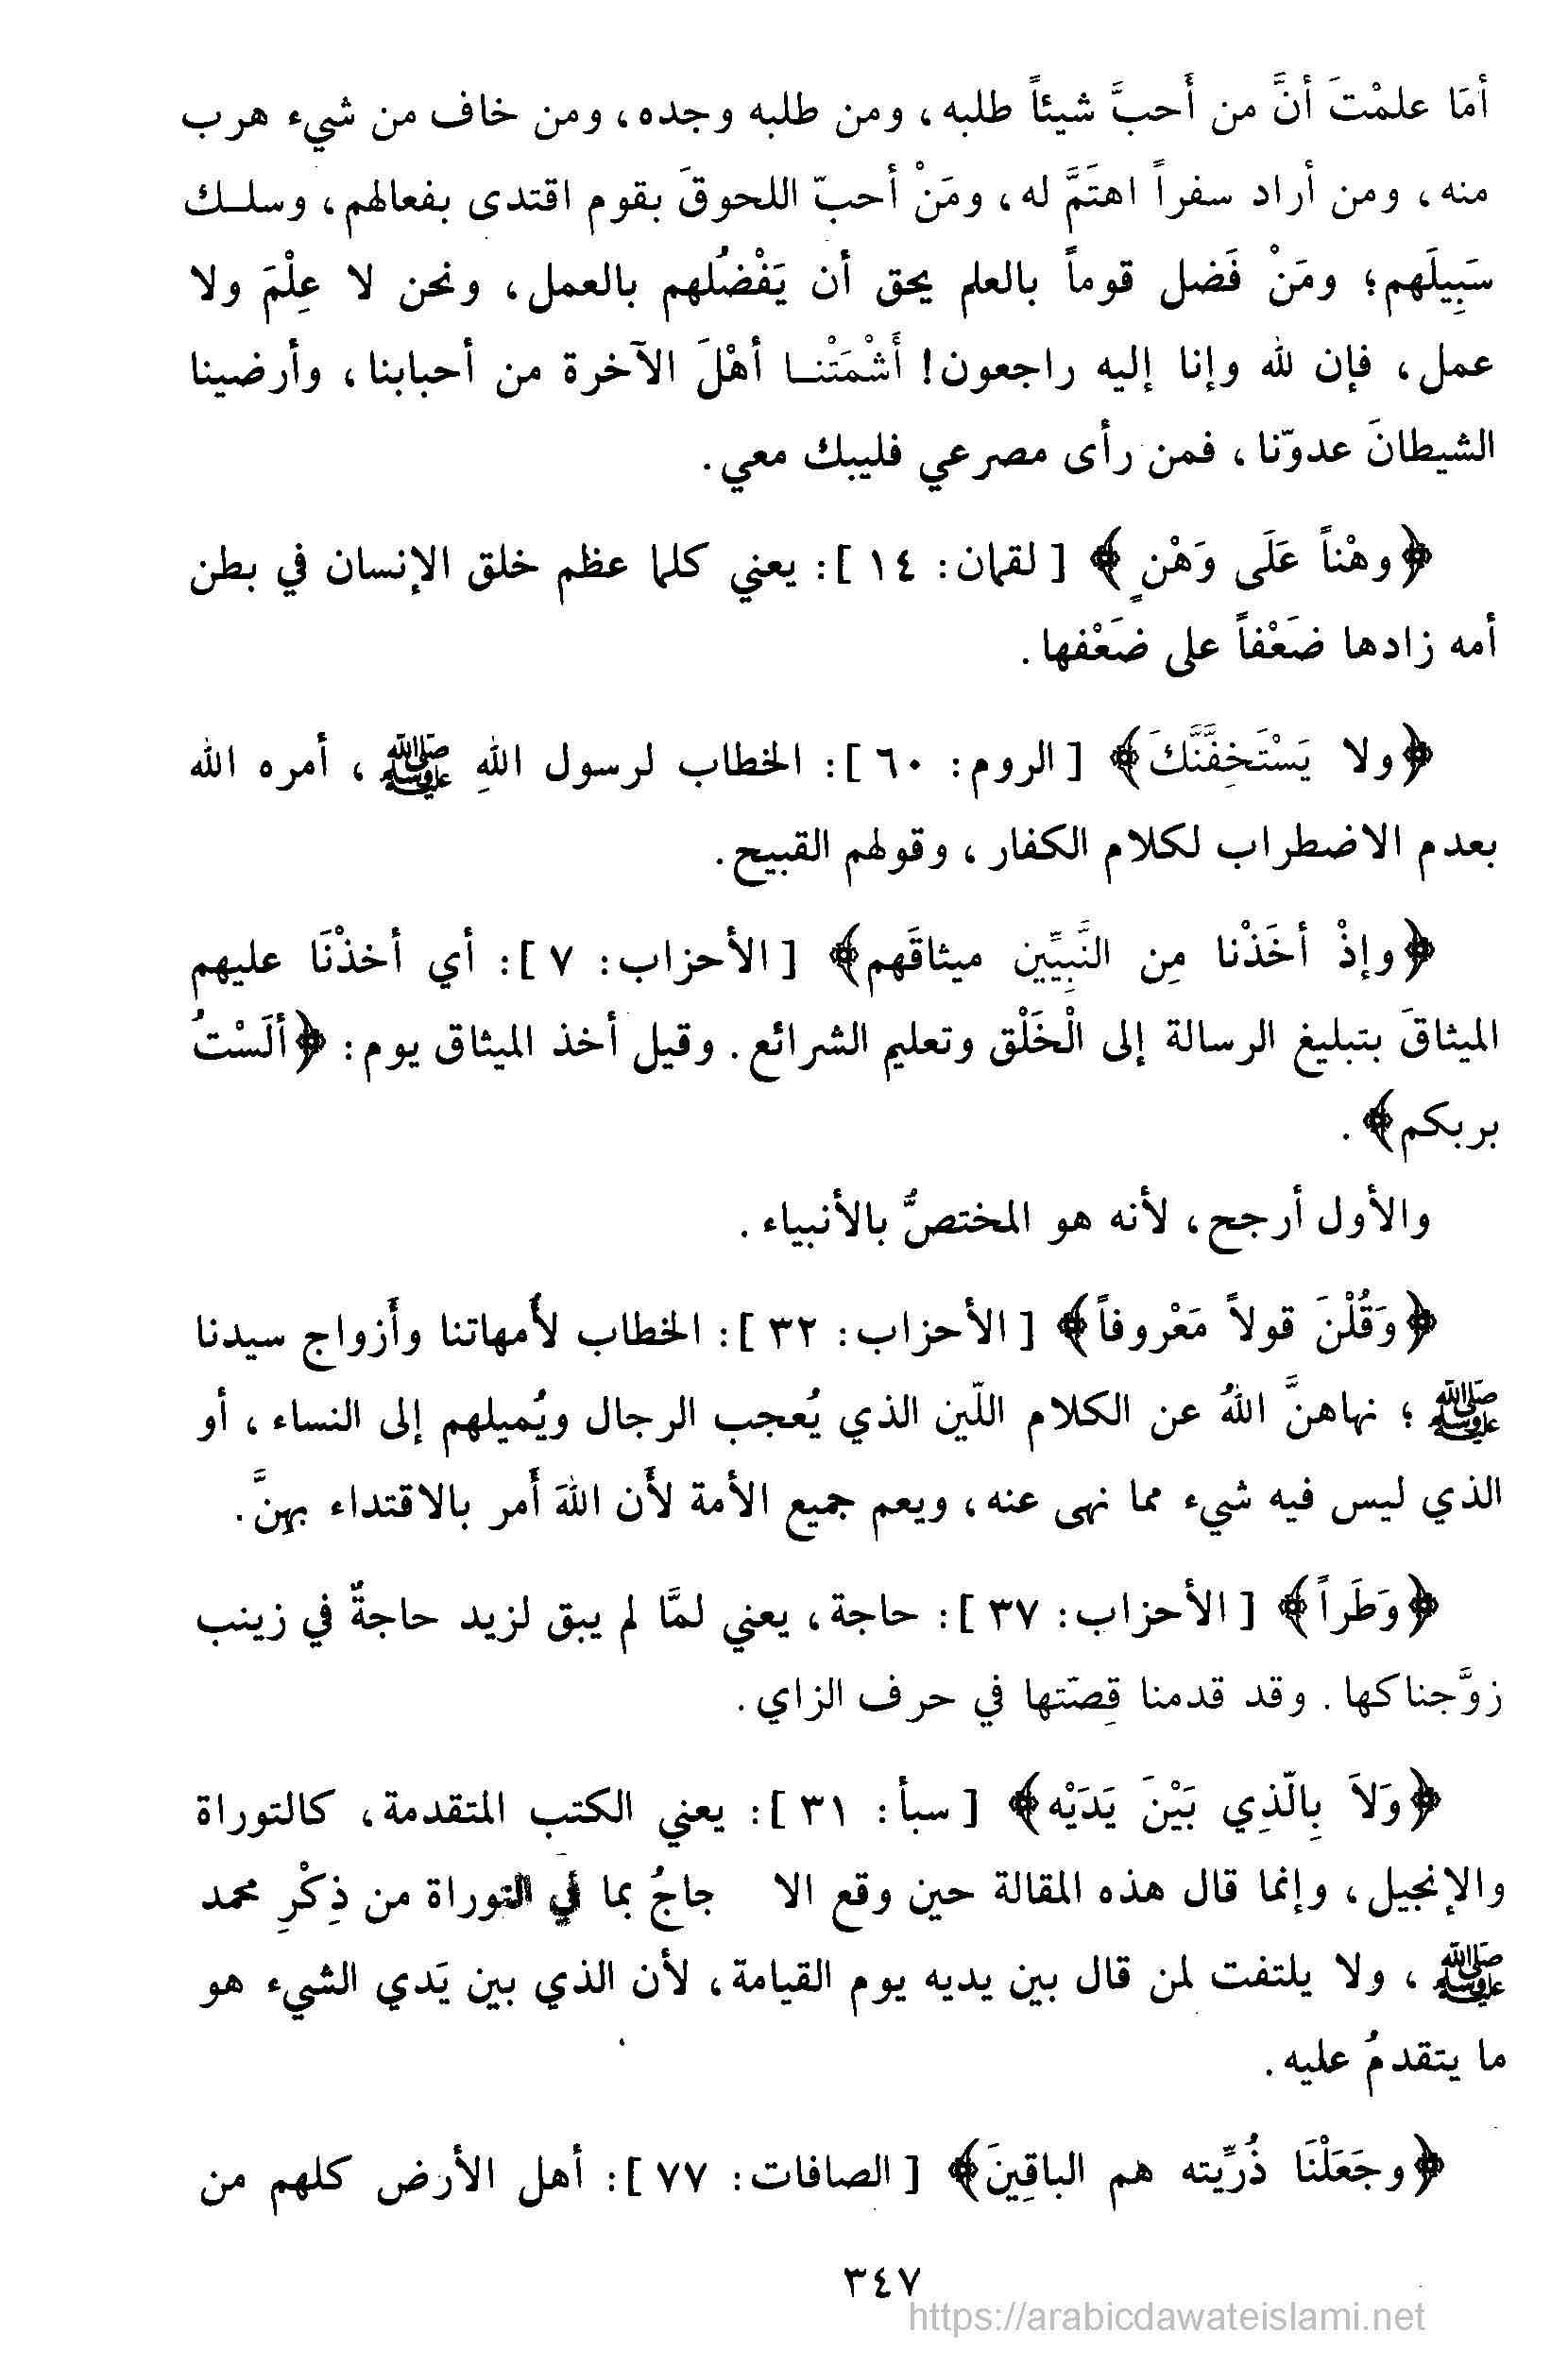 أمَا علمْتَ أنَّ من أَحبَّ شيئاً طلبه، ومن طلبه وجده، ومن خاف من شيء هرب
منه، ومن أراد سفراً اهتَمَّ له، ومَنْ أحبّ اللحوقَ بقوم اقتدى بفعالهم، وسلــك
سَبِيلَهم؛ ومَنْ فَضل قوماً بالعلم يحق أن يَفْضُلهم بالعمل، ونحن لا عِلْمَ ولا
عمل، فإن لله وإنا إليه راجعون! أَشْمَتْنــا أهْلَ الآخرة من أحبابنا، وأرضينا
الشيطانَ عدوّنا، فمن رأى مصرعي فليبك معي.
﴿وهْناً عَلَى وَهْنٍ﴾ [لقمان: ١٤]: يعني كلما عظم خلق الإنسان في بطن
أمه زادها ضَعْفاً على ضَعْفها.
﴿ولا يَسْتَخِفَّنَّكَ﴾ [الروم: ٦٠]: الخطاب لرسول اللهِ ﷺ، أمره الله
بعدم الاضطراب لكلام الكفار، وقولهم القبيح.
﴿وإذْ أخَذْنا مِن النَّبِيِّين ميثاقَهم﴾ [الأحزاب: ٧]: أي أخذْنَا عليهم
الميثاقَ بتبليغ الرسالة إلى الْخَلْق وتعليم الشرائع. وقيل أخذ الميثاق يوم: ﴿ألَسْتُ
بربكم﴾.
والأول أرجح، لأنه هو المختصُّ بالأنبياء.
﴿وَقُلْنَ قولاً مَعْروفاً﴾ [الأحزاب: ٣٢]: الخطاب لأُمهاتنا وأَزواج سيدنا
ﷺ؛ نهاهنَّ اللهُ عن الكلام اللّين الذي يُعجب الرجال ويُميلهم إلى النساء، أو
الذي ليس فيه شيء مما نهى عنه، ويعم جميع الأمة لأَن اللهَ أَمر بالاقتداء بهنَّ.
﴿وَطَراً﴾ [الأحزاب: ٣٧]: حاجة، يعني لمَّا لم يبق لزيد حاجةٌ في زينب
زوَّجناكها. وقد قدمنا قِصّتها في حرف الزاي.
﴿وَلاَ بِالّذِي بَيْنَ يَدَيْه﴾ [سبأ: ٣١]: يعني الكتب المتقدمة، كالتوراة
والإنجيل، وإنما قال هذه المقالة حين وقع الا جاجُ بما في التوراة من ذِكْرِ محمد
ﷺ، ولا يلتفت لمن قال بين يديه يوم القيامة، لأن الذي بين يَدي الشيء هو
ما يتقدمُ عليه.
﴿وجَعَلْنَا ذُرِّيته هم الباقِينَ﴾ [الصافات: ٧٧]: أهل الأرض كلهم من
٣٤٧
https://arabicdawateislami.net